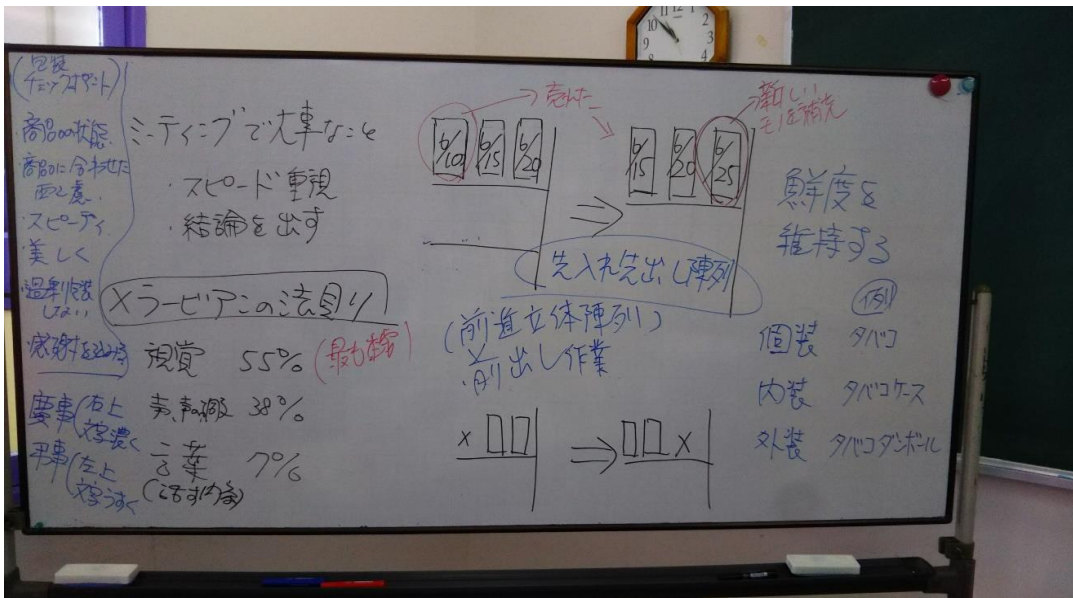 (包装
チェックポイント)
・商品の状態
・商品に合わせた
・スピーディ
・美しく
・過剰包装
しない
慶事(右上
文字濃く
弔事(左上
文字うすく
ミーティングで大事なこと
・スピード重視
・結論を出す
メラービアンの法則
視覚 55% (最も重要)
38%
言葉 7%
(話す内容)
→売れた→
6/10 6/15 6/20
⇒
6/15 6/20 6/25
→新しい
モノを補充
先入れ先出し陳列
(前進立体陳列)
前出し作業
×
⇒
×
鮮度を
維持する
例
個装 タバコ
内装 タバコケース
外装 タバコダンボール
10 11 12 1 2
9 3
8 4